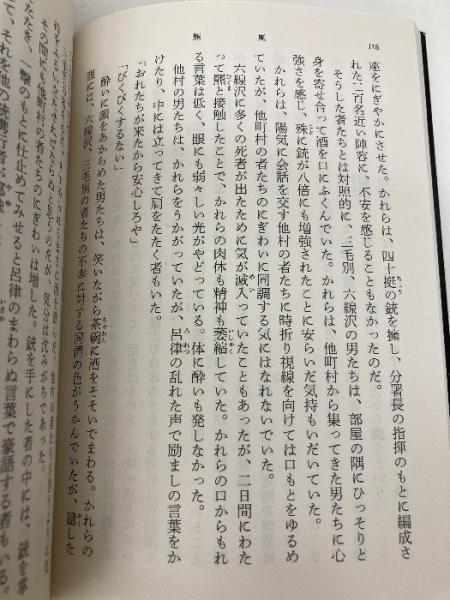 118
羆嵐
座をにぎやかにさせた。かれらは、四十挺の銃を擁し、分署長の指揮のもとに編成さ
れた二百名近い陣容に、不安を感じることもなかったのだ。
そうした者たちとは対照的に、三毛別、六線沢の男たちは、部屋の隅にひっそりと
身を寄せ合って酒を口にふくんでいた。かれらは、他町村から集ってきた男たちに心
強さを感じ、殊に銃が八倍にも増強されたことに安らいだ気持もいだいていた。
かれらは、陽気に会話を交す他村の者たちに時折り視線を向けては口もとをゆるめ
ていたが、他町村の者たちのにぎわいに同調する気にはなれないでいた。
六線沢に多くの死者が出たために気が滅入っていたこともあったが、二日間にわた
って羆と接触したことで、かれらの肉体も精神も萎縮していた。かれらの口からもれ
る言葉は低く、眼にも弱々しい光がやどっている。体に酔いも発しなかった。
他村の男たちは、かれらをうかがっていたが、呂律の乱れた声で励ましの言葉をか
けたり、中には立ってきて肩をたたく者もいた。
「びくびくするない」
「おれたちが来たから安心しろや」
酔いに顔をあからめた男たちは、笑いながら茶碗に酒をそそいでまわる。かれらの
眼には、六線沢、三毛別の者たちの不幸に対する同情の色がうかんでいたが、臆した
その間にも、他町村の者たちのにぎわいは増した。銃を手にした者の中には、銃を
たたき、一撃のもとに仕止めてみせると呂律のまわらぬ言葉で豪語する者もいる。